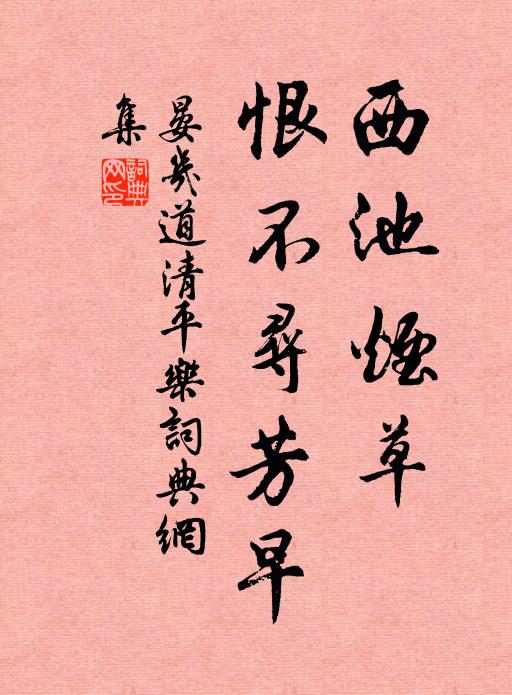 西池煙草
恨不尋芳早
晏幾道清平樂詞典網
集
詞典網印